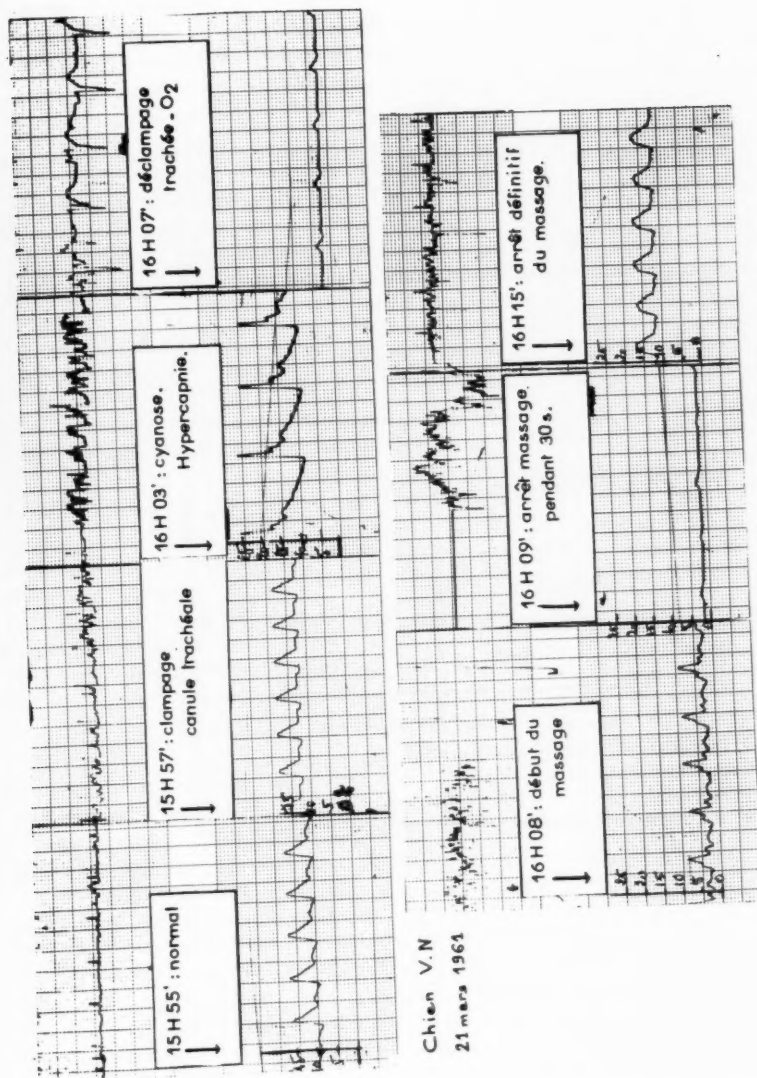 15 H 55' : normal
15 H 57' : clampage
canule trachéale
16 H 03' : cyanose.
Hypercapnie.
16 H 07' : déclampage
trachée - O2
Chien V. N
21 mars 1961
16 H 08' : début du
massage
16 H 09' : arrêt massage
pendant 30 s.
16 H 15' : arrêt définitif
du massage.
15
10
5
15
10
5
25
20
15
10
5
0
25
20
15
10
5
0
25
20
15
10
5
0